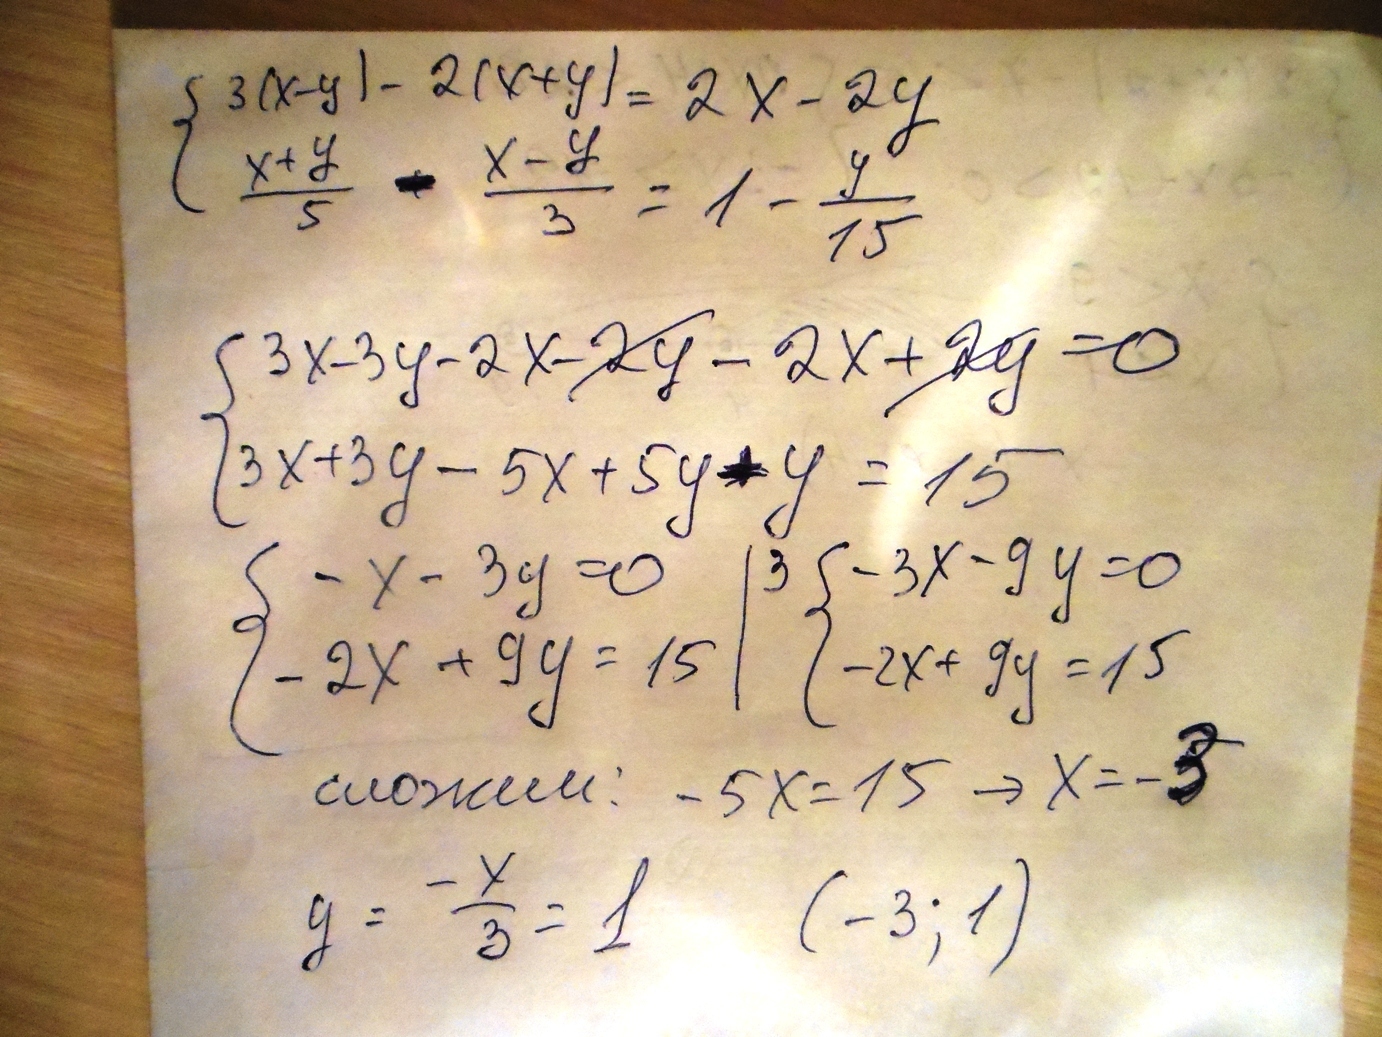 { 3(x-y) - 2(x+y) = 2x - 2y
(x+y)/5 - (x-y)/3 = 1 - y/15
{ 3x-3y-2x-2y-2x+2y=0
3x+3y-5x+5y+y=15
{ -x-3y=0 |3 { -3x-9y=0
-2x+9y=15 | -2x+9y=15
сложим: -5x=15 → x=-3
y = -x/3 = 1 (-3;1)